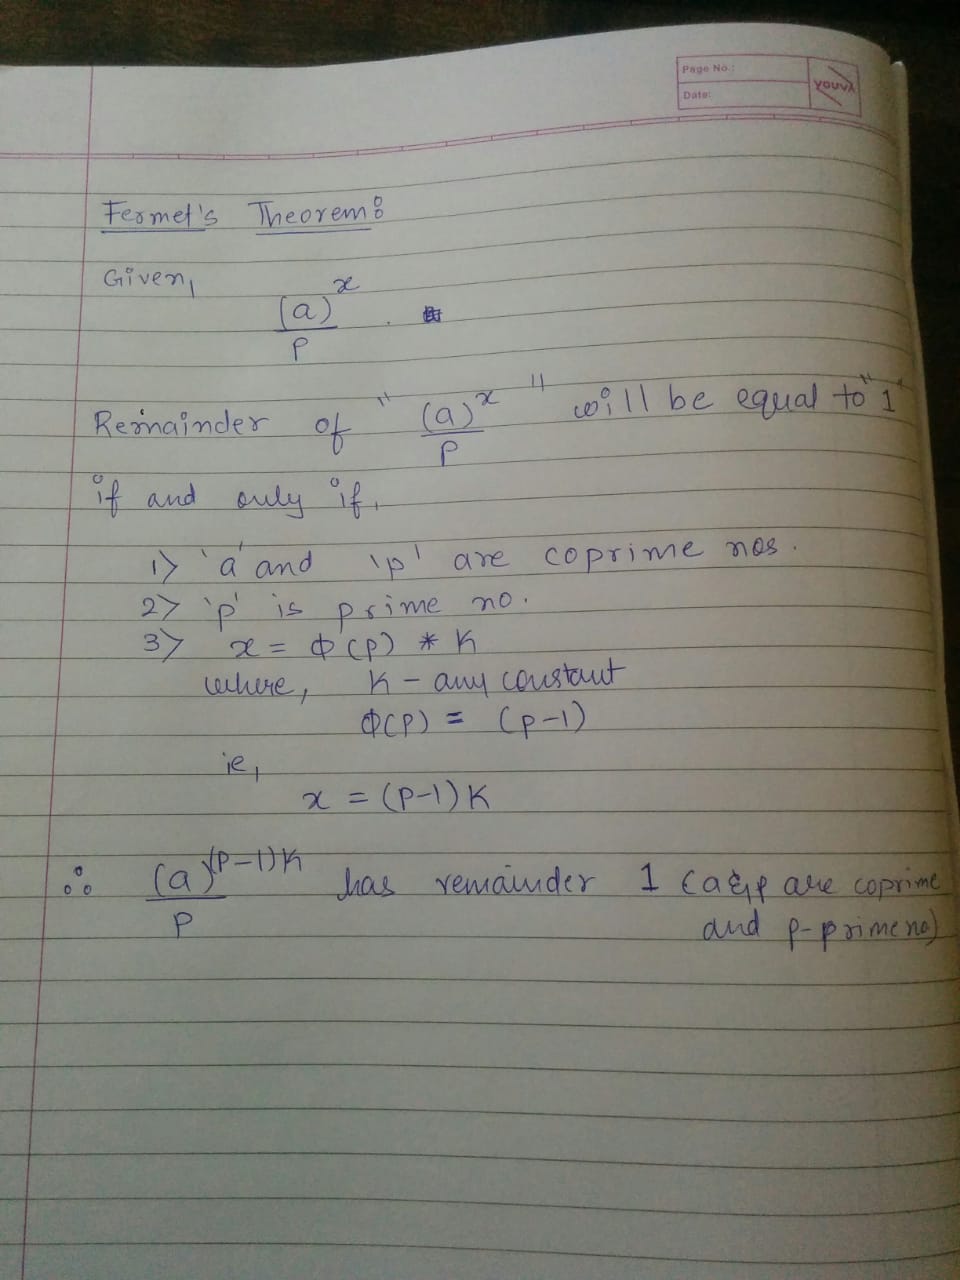 Page No.:
Date:
youva
Fermet's Theorem:
Given,
(a)^x
p
Remainder of "(a)^x/p" will be equal to "1"
if and only if,
1> 'a' and 'p' are coprime nos.
2> 'p' is prime no.
3> x = Φ(p) * K
where, K - any constant
Φ(p) = (p-1)
ie,
x = (p-1)K
∴ (a)^(p-1)K/p has remainder 1 (a & p are coprime
and p-prime no)